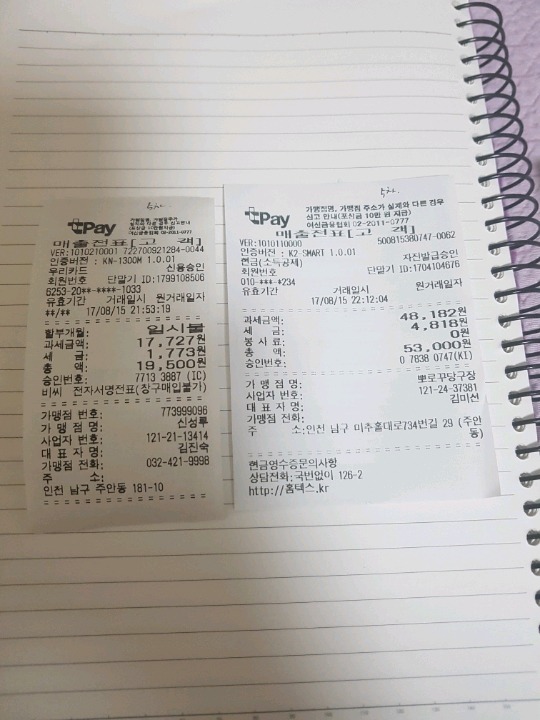 5차.
Pay
가맹점명, 가맹점주소가
실제와 다른 경우 신고안내
여신금융협회 02-2011-0777
매출전표[고 객]
VER:1010210001 722700921284-0044
인증버전 : KN-1300M 1.0.01
우리카드 신용승인
회원번호 단말기 ID:1799108506
6253-20**-****-1033
유효기간 거래일시 원거래일자
**/** 17/08/15 21:53:19
할부개월: 일시불
과세금액: 17,727원
세 금: 1,773원
총 액: 19,500원
승인번호: 7713 3887 (IC)
비씨 전자서명전표(창구매입불가)
가맹점 번호: 773999096
가 맹 점 명: 신성루
사업자 번호: 121-21-13414
대 표 자 명: 김진숙
가맹점 전화: 032-421-9998
주 소:
인천 남구 주안동 181-10
5차.
Pay
가맹점명, 가맹점 주소가 실제와 다른 경우
신고 안내(포진금 10만 원 지급)
여신금융협회 02-2011-0777
매출전표[고 객]
VER:1010110000 500815380747-0062
인증버전 : K2-SMART 1.0.01
현금(소득공제) 자진발급승인
회원번호 단말기 ID:1704104676
010-***-*234
유효기간 거래일시 원거래일자
17/08/15 22:12:04
과세금액: 48,182원
세 금: 4,818원
봉 사 료: 0원
총 액: 53,000원
승인번호: 0 7838 0747(KI)
가 맹 점 명: 뽀로꾸당구장
사업자 번호: 121-24-37381
대 표 자 명: 김미선
가맹점 전화:
주 소:인천 남구 미추홀대로734번길 29 (주안
동)
현금영수증문의사항
상담전화:국번없이 126-2
http://홈텍스.kr